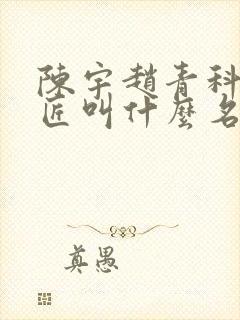 陳宇趙青科
匠叫什麼名
真愚